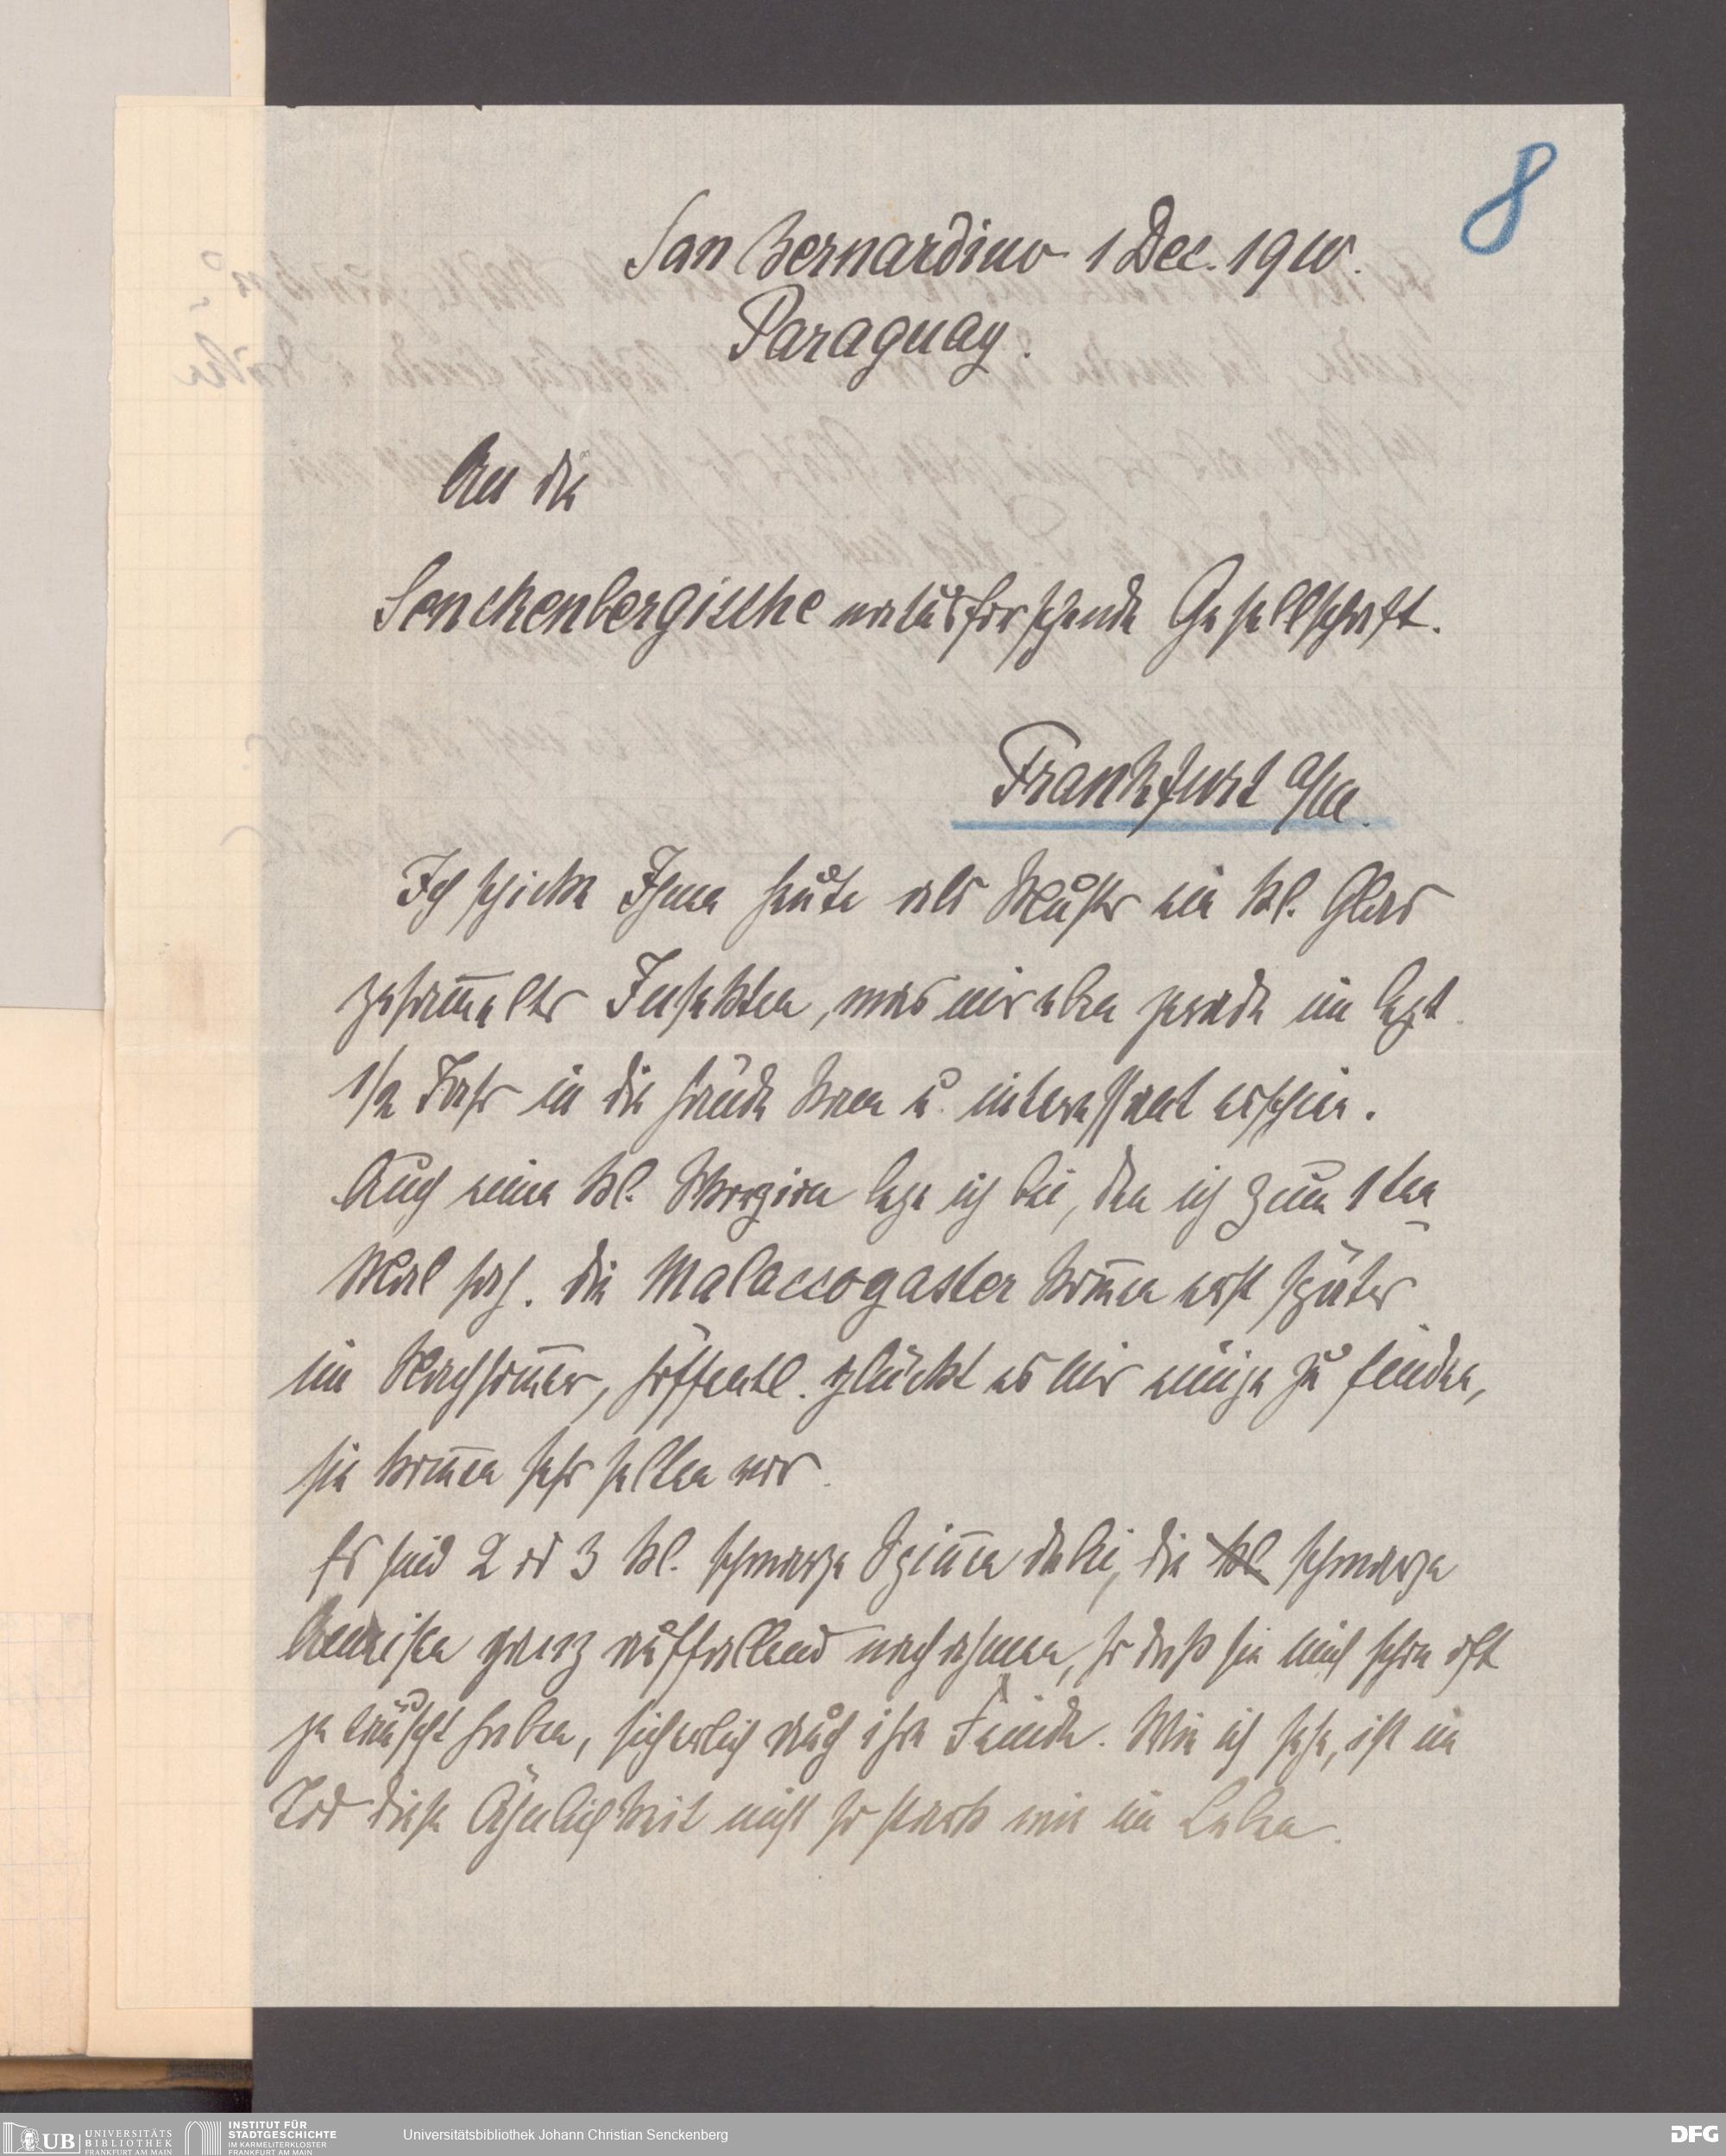 8
San Bernardino 1 Dec. 1910.
Paraguay.
An die
Senckenbergische naturforschende Gesellschaft.
Frankfurt a/M.
Ich schicke Ihnen heute als Muster ein kl. Glas
gesam̅elter Insekten, was mir eben gerade im letzt.
1/2 Jahr in die Hände kam u. interessant erschien.
Auch einen kl. Skorpion lege ich bei, den ich zum 1ten
Mal sah. Die Malaccogaster kom̅en erst später
im Nachsom̅er, hoffentl. glückt es mir einige zu finden,
sie kom̅en sehr selten vor.
Es sind 2 od 3 kl. schwarze Spin̅en dabei, die kl schwarze
Ameisen ganz auffallend nachahmen, so daß sie mich schon oft
getäuscht haben, sicherlich auch ihre Feinde. Wie ich sehe, ist im
Tod diese Ähnlichkeit nicht so stark wie im Leben.
UB UNIVERSITÄTS
BIBLIOTHEK
FRANKFURT AM MAIN
INSTITUT FÜR
STADTGESCHICHTE
IM KARMELITERKLOSTER
FRANKFURT AM MAIN
Universitätsbibliothek Johann Christian Senckenberg
DFG